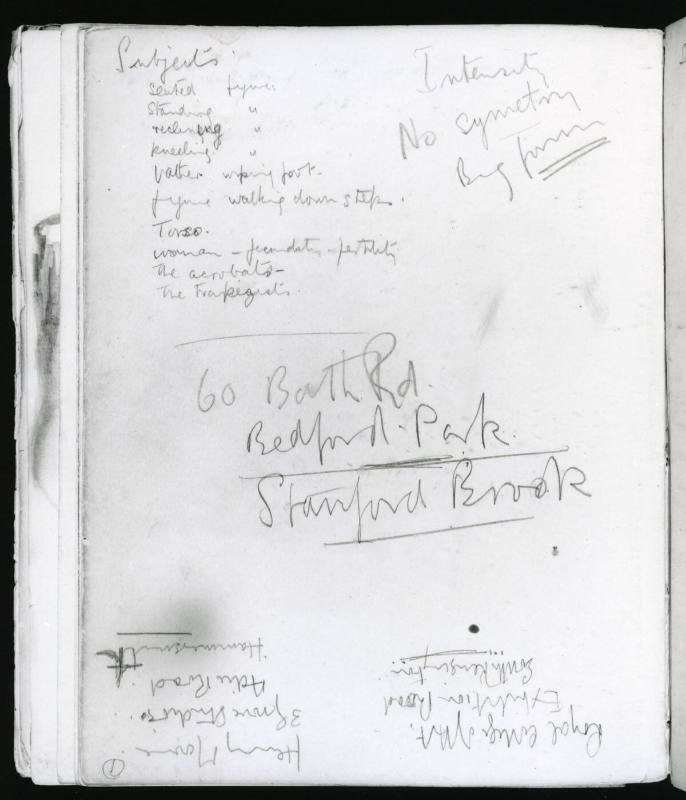 Subjects
seated figure.
standing "
reclining "
kneeling. "
bather wiping foot.
figure walking down steps.
Torso.
woman - fecundity - fertility
the acrobats -
the Trapezists.
Intensity
No symetry
Big form
60 Bath Rd.
Bedford. Park.
Stamford Brook
Henry Moore
3 Grove Studios.
Adie Road.
Hammersmith
Royal College of Art.
Exhibition Road
South Kensington
1